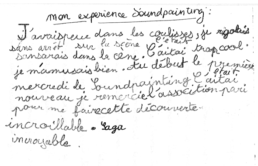 mon experience Soundpainting :
J'avais peur dans les coulisses, je rigolais
sans arret sur la scène c'était
dansarais dans la cène. C'aitai trapcool.
je mamusais bien. Au début le première
mercredi le Soundpainting c'aitai était
nouveau je remercier l'assocition pari
pour me faire cette découverte
incroillable. Saga
incroyable.